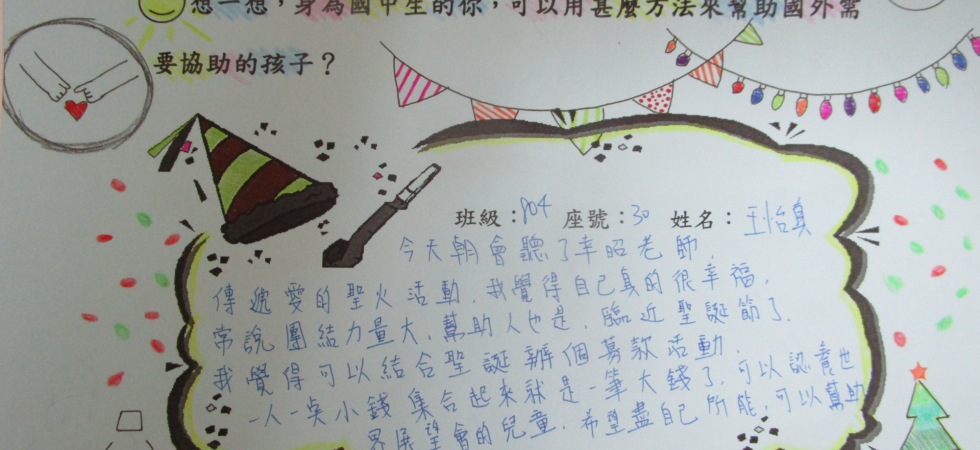 想一想，身為國中生的你，可以用甚麼方法來幫助國外需
要協助的孩子？
班級：804 座號：30 姓名：王怡真
今天朝會聽了幸昭老師，
傳遞愛的聖火活動，我覺得自己真的很幸福，
常說團結力量大，幫助人也是，臨近聖誕節了，
我覺得可以結合聖誕辦個募款活動，
一人一點小錢集合起來就是一筆大錢了，可以認養世
界展望會的兒童，希望盡自己所能，可以幫助